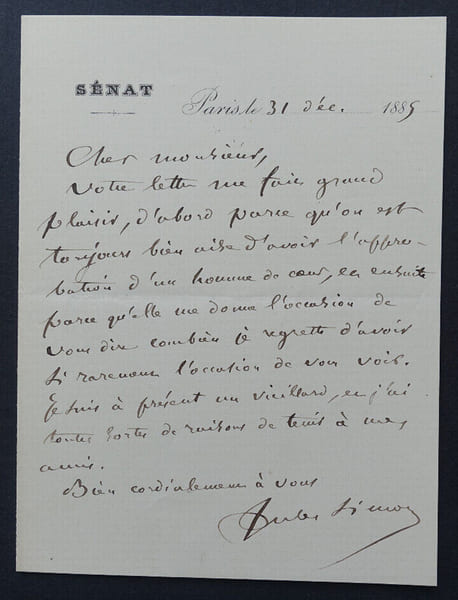 SÉNAT
Paris, le 31 déc. 1885
Cher monsieur,
Votre lettre me fait grand
plaisir, d'abord parce qu'on est
toujours bien aise d'avoir l'appro-
bation d'un homme de cœur, et ensuite
parce qu'elle me donne l'occasion de
vous dire combien je regrette d'avoir
si rarement l'occasion de vous voir.
Je suis à présent un vieillard, et j'ai
toutes sortes de raisons de tenir à mes
amis.
Bien cordialement à vous
Jules Simon